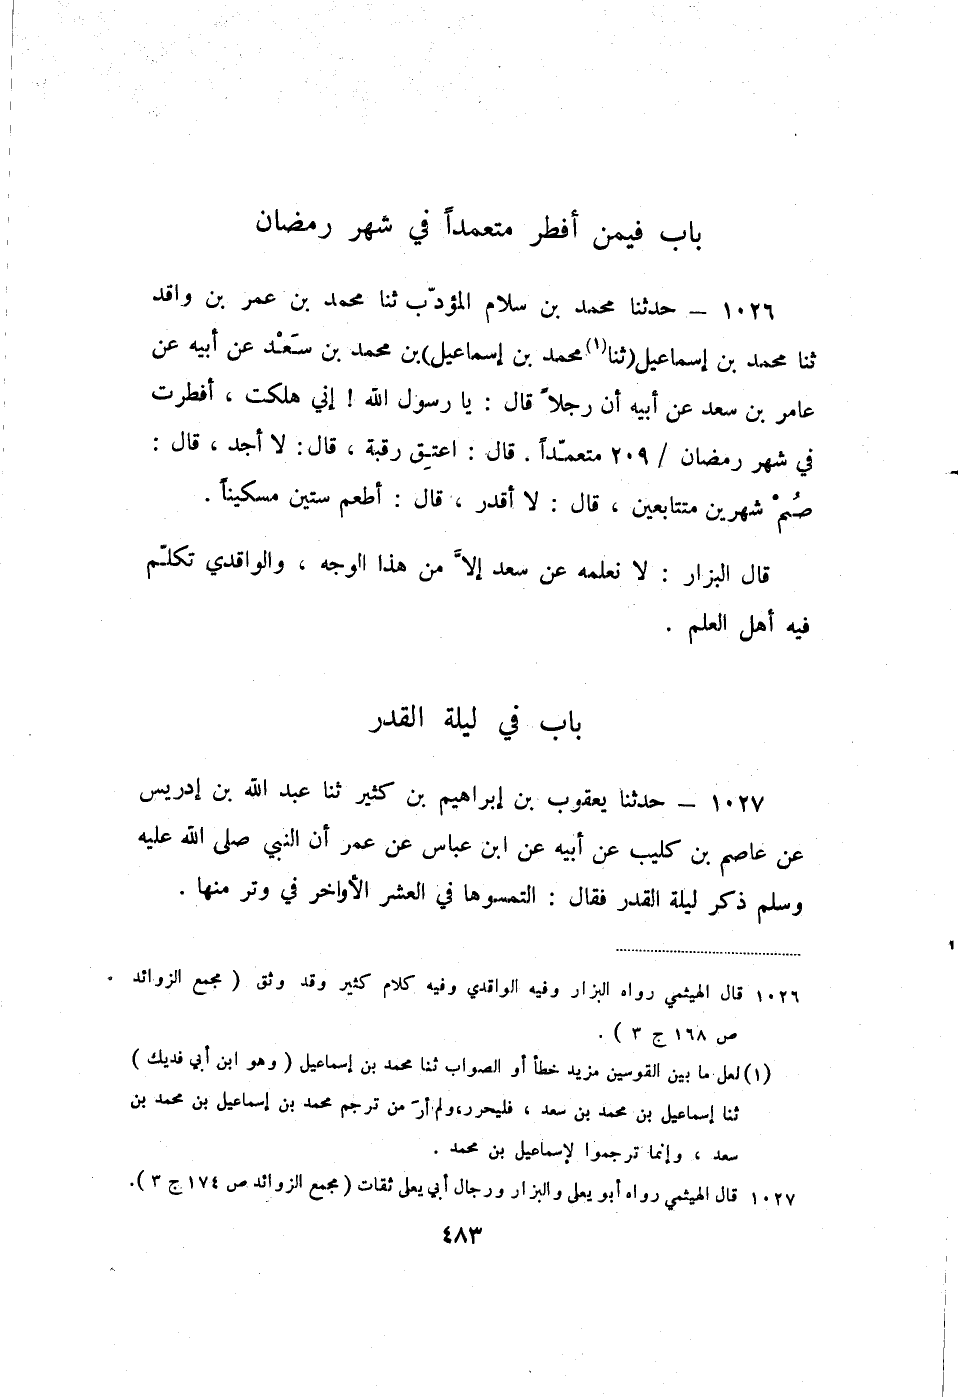 باب فيمن أفطر متعمداً في شهر رمضان
١٠٢٦ – حدثنا محمد بن سلام المؤدّب ثنا محمد بن عمر بن واقد
ثنا محمد بن إسماعيل(ثنا(١)محمد بن إسماعيل)بن محمد بن سَعْد عن أبيه عن
عامر بن سعد عن أبيه أن رجلاً قال : يا رسول الله ! إني هلكت ، أفطرت
في شهر رمضان / ٢٠٩ متعمّداً . قال : اعتِق رقبة ، قال: لا أجد ، قال :
صُمْ شهرين متتابعين ، قال : لا أقدر ، قال : أطعم ستين مسكيناً .
قال البزار : لا نعلمه عن سعد إلاَّ من هذا الوجه ، والواقدي تكلّم
فيه أهل العلم .
باب في ليلة القدر
١٠٢٧ – حدثنا يعقوب بن إبراهيم بن كثير ثنا عبد الله بن إدريس
عن عاصم بن كليب عن أبيه عن ابن عباس عن عمر أن النبي صلى الله عليه
وسلم ذكر ليلة القدر فقال : التمسوها في العشر الأواخر في وتر منها .
١٠٢٦ قال الهيثمي رواه البزار وفيه الواقدي وفيه كلام كثير وقد وثق ( مجمع الزوائد
ص ١٦٨ ج ٣ ) .
(١) لعل ما بين القوسين مزيد خطأ أو الصواب ثنا محمد بن إسماعيل ( وهو ابن أبي فديك )
ثنا إسماعيل بن محمد بن سعد ، فليحرر،ولم أرَ من ترجم محمد بن إسماعيل بن محمد بن
سعد ، وإنما ترجموا لإسماعيل بن محمد .
١٠٢٧ قال الهيثمي رواه أبو يعلى والبزار ورجال أبي يعلى ثقات ( مجمع الزوائد ص ١٧٤ ج ٣ ).
٤٨٣